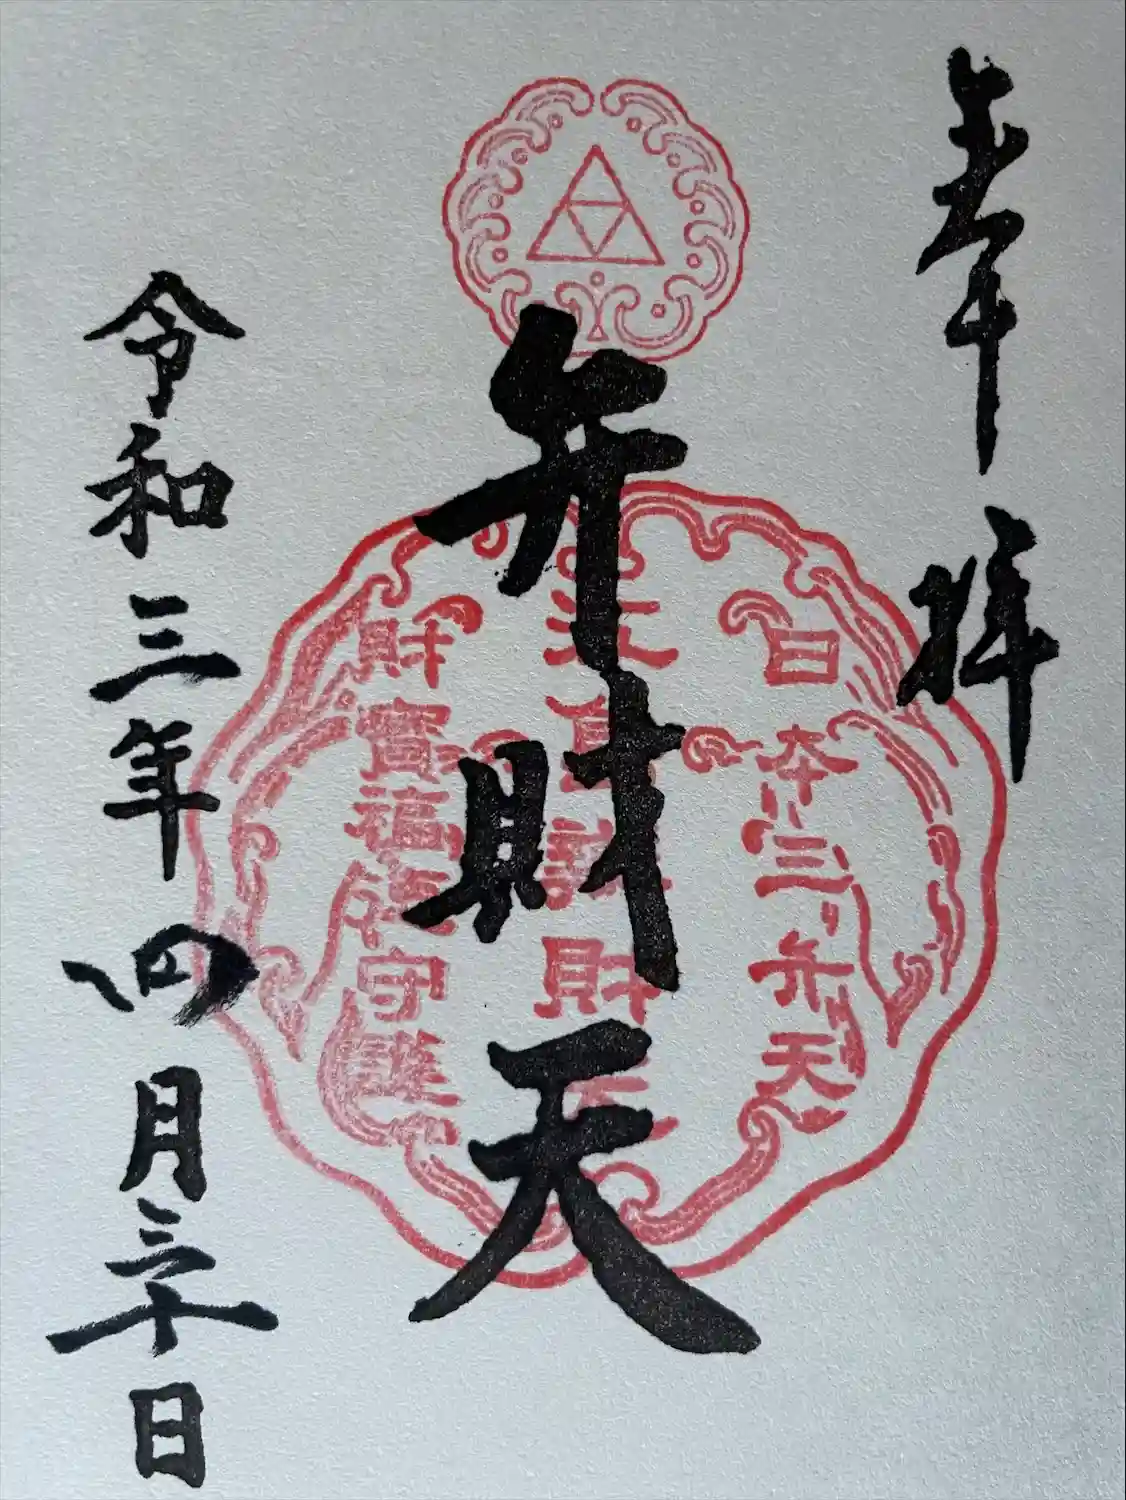 奉拝
日本三弁天
弁財天
財寶福徳守護
令和三年四月三十日